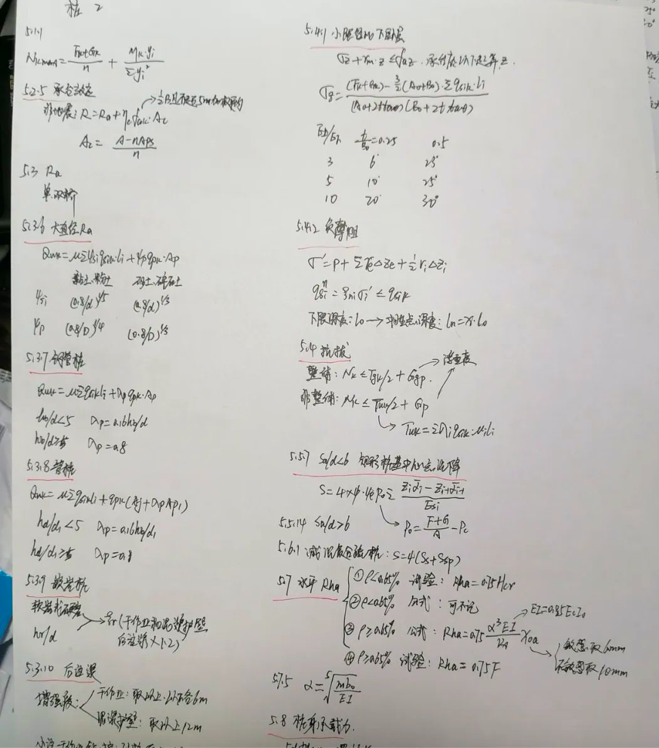 桩 2
5.1.1
Nikmax = (Fk+Gk)/n + Mk·yi/Σyi²
5.2.5 承台效应
非地震: R = Ra + ηc fak·Ac
Ac = (A-nAps)/n
5.3 Ra
单双桥
5.3.6 大直径Ra
Quk = uΣψsi qsik·li + ψp qpk·Ap
黏土、粉土 砂土、碎石土
ψsi (0.8/d)^1/5 (0.8/d)^1/3
ψp (0.8/D)^1/4 (0.8/D)^1/3
5.3.7 钢管桩
Quk = uΣqsik li + λp qpk·Ap
hb/d<5 λp=0.16hb/d
hb/d≥5 λp=0.8
5.3.8 管桩
Quk = uΣqsik li + qpk(Aj+λp Ap1)
hd/d1<5 λp=0.16hb/d1
hd/d1≥5 λp=0.8
5.3.9 嵌岩桩
hr/d
后注浆×1.2)
5.3.10 后注浆
增强段:
干作业: 取以上、以下各6m
泥浆护壁: 取以上12m
5.4.1 小 下卧层
σz + γm·z ≤ faz
σz = ((Fk+Gk) - 3/2(A0+B0)Σqsik·li)/((A0+2t tanθ)(B0+2t tanθ))
Es1/Es2 t/B0=0.25 0.5
3 6° 23°
5 10° 25°
10 20° 30°
5.4.2 负摩阻
σ' = p + Σγe Δze + ½γiΔzi
qsi = ξni σi' ≤ qsik
下限深度: l0 → 中性点深度: ln = x·l0
5.4 抗拔
整体: Nk ≤ Tgk/2 + Ggp.
非整体: Nk ≤ Tuk/2 + Gp
Tuk = Σλi qsik·ui li
5.5.7 Sa/d<6 矩形桩基中心点沉降
S = 4·ψ·ψe P0 Σ (zi ᾱi - zi-1 ᾱi-1)/Esi
5.5.14 Sa/d>6
P0 = (F+G)/A - Pc
5.6.1 疏桩: S=4(Ss+Ssp)
5.7 水平 Rha
① ρ<0.65% 试验: Rha=0.75Hcr
② ρ<0.65% 公式: 可不记
③ ρ≥0.65% 公式: Rha=0.75 α³EI/νx χ0a
EI=0.85EcI0
敏感取6mm
不敏感取10mm
④ ρ≥0.65% 试验: Rha=0.75F
5.7.5 α = ⁵√(mb0/EI)
5.8 桩身承载力.